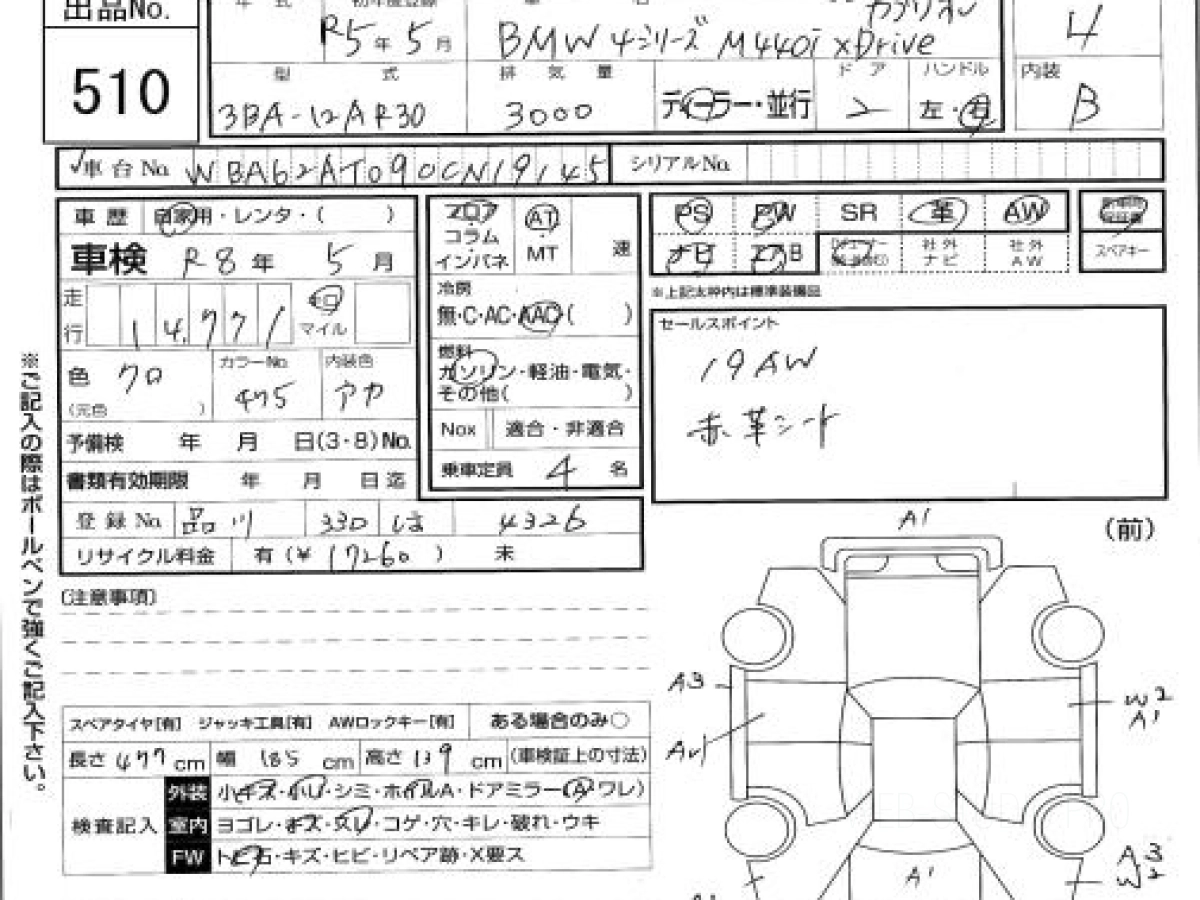 出品No.
510
年式
初年度登録
R5年5月
カブリオレ
BMW 4シリーズ M440i xDrive
4
型式
排気量
ドア
ハンドル
内装
3BA-12AR30
3000
ディーラー・並行
2
左・右
B
車台No. WBA62AT090CN19145
シリアルNo.
車歴 自家用・レンタ・( )
車検 R8年 5月
走行 14,771 キロ マイル
色 クロ
(元色 )
カラーNo. 475
内装色 アカ
予備検 年 月 日(3・8)No.
書類有効期限 年 月 日迄
登録No. 品川 330 は 4326
リサイクル料金 有(¥ 17260 ) 未
フロア
コラム
インパネ
AT
MT
速
冷房
無・C・AC・AAC( )
燃料
ガソリン・軽油・電気・
その他( )
Nox 適合・非適合
乗車定員 4 名
PS PW SR 革 AW
ナビ エアB
社外ナビ
社外AW
スペアキー
※上記太枠内は標準装備品
セールスポイント
19AW
赤革シート
〔注意事項〕
スペアタイヤ[有] ジャッキ工具[有] AWロックキー[有] ある場合のみ○
長さ 477 cm 幅 185 cm 高さ 139 cm (車検証上の寸法)
検査記入
外装 小キズ・小凹・シミ・ホイルA・ドアミラー(A・ワレ)
室内 ヨゴレ・キズ・スレ・コゲ・穴・キレ・破れ・ウキ
FW トビ石・キズ・ヒビ・リペア跡・X要ス
※ご記入の際はボールペンで強くご記入下さい。
(前)
A1
A3
W2
A1
A1
A3
W2